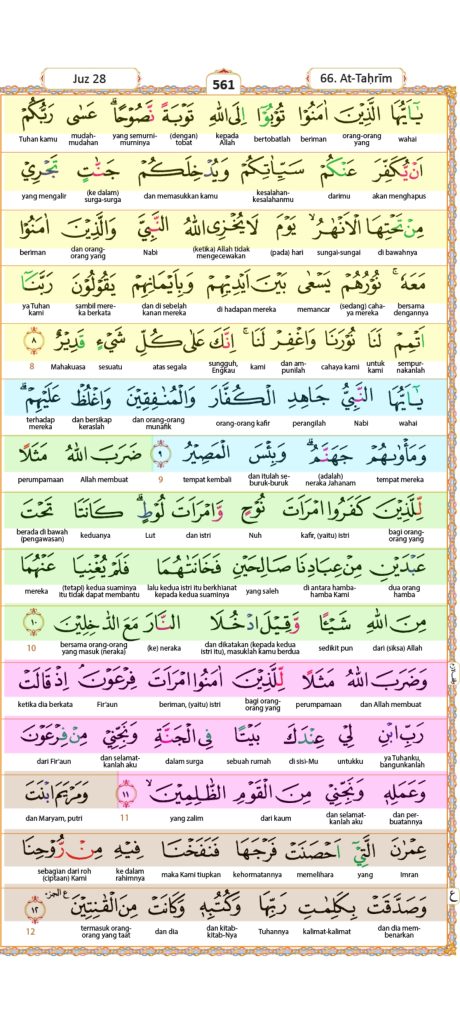 Juz 28
561
66. At-Taḥrīm
يٰٓاَيُّهَا الَّذِيْنَ اٰمَنُوْا تُوْبُوْٓا اِلَى اللّٰهِ تَوْبَةً نَّصُوْحًاۗ عَسٰى رَبُّكُمْ
wahai orang-orang yang beriman bertobatlah kepada Allah (dengan) tobat yang semurni-murninya mudah-mudahan Tuhan kamu
اَنْ يُّكَفِّرَ عَنْكُمْ سَيِّاٰتِكُمْ وَيُدْخِلَكُمْ جَنّٰتٍ تَجْرِيْ
akan menghapus darimu kesalahan-kesalahanmu dan memasukkan kamu (ke dalam) surga-surga yang mengalir
مِنْ تَحْتِهَا الْاَنْهٰرُۙ يَوْمَ لَا يُخْزِى اللّٰهُ النَّبِيَّ وَالَّذِيْنَ اٰمَنُوْا
di bawahnya sungai-sungai (pada) hari (ketika) Allah tidak mengecewakan Nabi dan orang-orang yang beriman
مَعَهٗۚ نُوْرُهُمْ يَسْعٰى بَيْنَ اَيْدِيْهِمْ وَبِاَيْمَانِهِمْ يَقُوْلُوْنَ رَبَّنَآ
bersama dengannya (sedang) cahaya mereka memancar di hadapan mereka dan di sebelah kanan mereka sambil mereka berkata ya Tuhan Kami
اَتْمِمْ لَنَا نُوْرَنَا وَاغْفِرْ لَنَاۚ اِنَّكَ عَلٰى كُلِّ شَيْءٍ قَدِيْرٌ ٨
sempurnakanlah untuk kami cahaya kami dan ampunilah kami sungguh, Engkau atas segala sesuatu Mahakuasa 8
يٰٓاَيُّهَا النَّبِيُّ جَاهِدِ الْكُفَّارَ وَالْمُنٰفِقِيْنَ وَاغْلُظْ عَلَيْهِمْۗ
wahai Nabi perangilah orang-orang kafir dan orang-orang munafik dan bersikap keraslah terhadap mereka
وَمَأْوٰىهُمْ جَهَنَّمُۗ وَبِئْسَ الْمَصِيْرُ ٩ ضَرَبَ اللّٰهُ مَثَلًا
tempat mereka (adalah) neraka Jahanam dan itulah seburuk-buruk tempat kembali 9 Allah membuat perumpamaan
لِّلَّذِيْنَ كَفَرُوا امْرَاَتَ نُوْحٍ وَّامْرَاَتَ لُوْطٍۗ كَانَتَا تَحْتَ
bagi orang-orang yang kafir, (yaitu) istri Nuh dan istri Lut keduanya berada di bawah (pengawasan)
عَبْدَيْنِ مِنْ عِبَادِنَا صَالِحَيْنِ فَخَانَتٰهُمَا فَلَمْ يُغْنِيَا عَنْهُمَا
dua orang hamba di antara hamba-hamba Kami yang saleh lalu kedua istri itu berkhianat kepada kedua suaminya (tetapi) kedua suaminya itu tidak dapat membantu mereka
مِنَ اللّٰهِ شَيْـًٔا وَّقِيْلَ ادْخُلَا النَّارَ مَعَ الدّٰخِلِيْنَ ١٠
dari (siksa) Allah sedikit pun dan dikatakan (kepada kedua istri itu), masuklah kamu berdua (ke) neraka bersama orang-orang yang masuk (neraka) 10
وَضَرَبَ اللّٰهُ مَثَلًا لِّلَّذِيْنَ اٰمَنُوا امْرَاَتَ فِرْعَوْنَۘ اِذْ قَالَتْ
dan Allah membuat perumpamaan bagi orang-orang yang beriman, (yaitu) istri Fir'aun ketika dia berkata
رَبِّ ابْنِ لِيْ عِنْدَكَ بَيْتًا فِى الْجَنَّةِ وَنَجِّنِيْ مِنْ فِرْعَوْنَ
ya Tuhanku, bangunkanlah untukku di sisi-Mu sebuah rumah dalam surga dan selamatkanlah aku dari Fir'aun
وَعَمَلِهٖ وَنَجِّنِيْ مِنَ الْقَوْمِ الظّٰلِمِيْنَۙ ١١ وَمَرْيَمَ ابْنَتَ
dan perbuatannya dan selamatkanlah aku dari kaum yang zalim 11 dan Maryam, putri
عِمْرٰنَ الَّتِيْٓ اَحْصَنَتْ فَرْجَهَا فَنَفَخْنَا فِيْهِ مِنْ رُّوْحِنَا
Imran yang memelihara kehormatannya maka Kami tiupkan ke dalam rahimnya sebagian dari roh (ciptaan) Kami
وَصَدَّقَتْ بِكَلِمٰتِ رَبِّهَا وَكُتُبِهٖ وَكَانَتْ مِنَ الْقٰنِتِيْنَ ١٢
dan dia membenarkan kalimat-kalimat Tuhannya dan kitab-kitab-Nya dan dia termasuk orang-orang yang taat 12